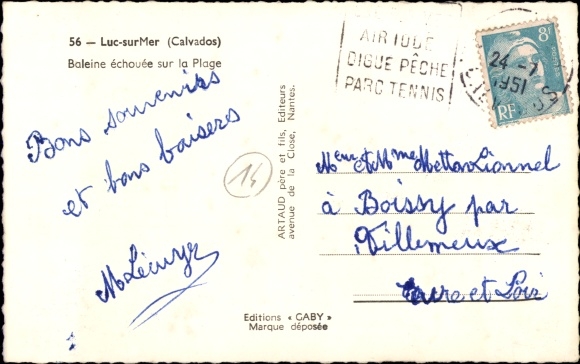 56 — Luc-surMer (Calvados)
Baleine échouée sur la Plage
Bons souvenirs
et bons baisers
M Lécuyr
14
ARTAUD père et fils, Editeurs
avenue de la Close, Nantes.
Editions « GABY »
Marque déposée
AIR IODÉ
DIGUE PÊCHE
PARC TENNIS
24 - 7
1951
8F
RF
Meur et Mme Metton Lionnel
à Boissy par
Villemeux
Eure et Loir